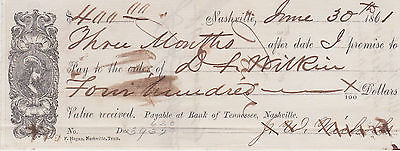 $400.00 Nashville, June 30th 1861
Three Months after date I promise to
Pay to the order of D. S. Wilkin
Four hundred X/100 Dollars
Value received. Payable at Bank of Tennessee, Nashville.
No. Due J. W.
F. Hagan, Nashville, Tenn.